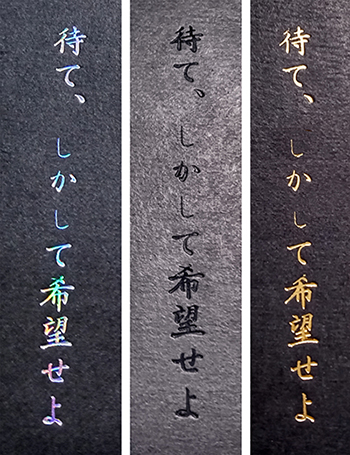 待て、しかして希望せよ
待て、しかして希望せよ
待て、しかして希望せよ